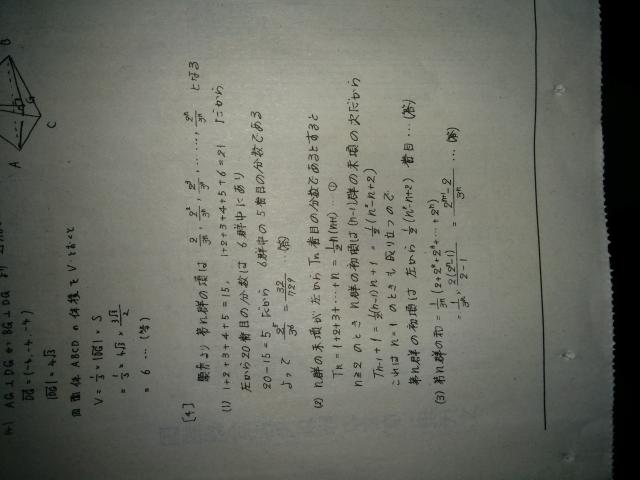 AG⊥DG か BG⊥DG
DG = (-4, 4, -4)
|DG| = 4√3
四面体 ABCD の体積を V とおくと
V = 1/3 × |DG| × S
= 1/3 × 4√3 × 3√3/2
= 6 … (答)
A
B
C
G
[4] 題意より 第n群の項は 2/3ⁿ, 2²/3ⁿ, 2³/3ⁿ, ……, 2ⁿ/3ⁿ となる
(1) 1+2+3+4+5=15, 1+2+3+4+5+6=21 だから
左から20番目の分数は 6群中にあり
20-15=5 だから 6群中の5番目の分数である
よって 2⁵/3⁶ = 32/729 …(答)
(2) n群の末項が左から Tn 番目の分数であるとすると
Tn = 1+2+3+…+n = 1/2 n(n+1) …①
n≧2 のとき n群の初項は (n-1)群の末項の次だから
Tn-1 + 1 = 1/2(n-1)n + 1 = 1/2(n²-n+2)
これは n=1 のときも成り立つので
第n群の初項は 左から 1/2(n²-n+2) 番目 …(答)
(3) 第n群の和 = 1/3ⁿ (2+2²+2³+…+2ⁿ)
= 1/3ⁿ × 2(2ⁿ-1)/2-1 = 2ⁿ⁺¹-2/3ⁿ …(答)